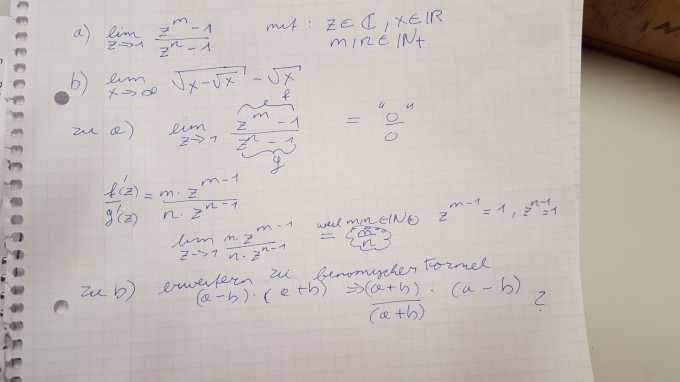 a) lim z→1 (z^m - 1)/(z^n - 1) mit: z∈ℂ, x∈ℝ
m,n∈ℕ+
b) lim x→∞ √(x-√x) - √x
zu a) lim z→1 (z^m - 1)/(z^n - 1) = "0/0"
f
g
f'(z)/g'(z) = m·z^(m-1)/n·z^(n-1)
lim z→1 m·z^(m-1)/n·z^(n-1) = m/n weil m,n∈ℕ+ z^(m-1) = 1, z^(n-1) = 1
zu b) erweitern zu benomischer Formel
(a-b)·(a+b) ⇒ (a+b)/(a+b) · (a-b) ?